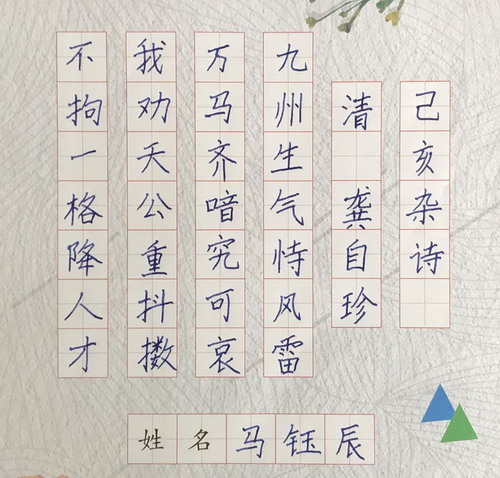 己亥杂诗
清 龚自珍
九州生气恃风雷
万马齐喑究可哀
我劝天公重抖擞
不拘一格降人才
姓名马钰辰